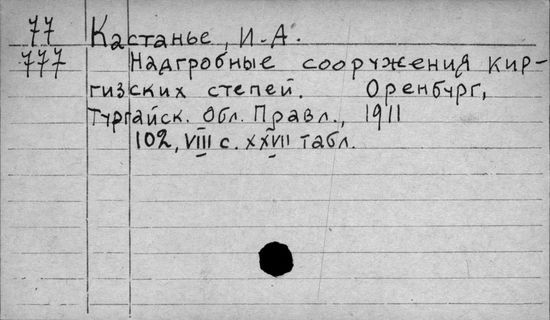 77 Кастанье, И-А.
777 Надгробные сооружения кир-
гизских степей. Оренбург,
Тургайск. Обл. Правл., 1911
102, VIII с. XXVII табл.